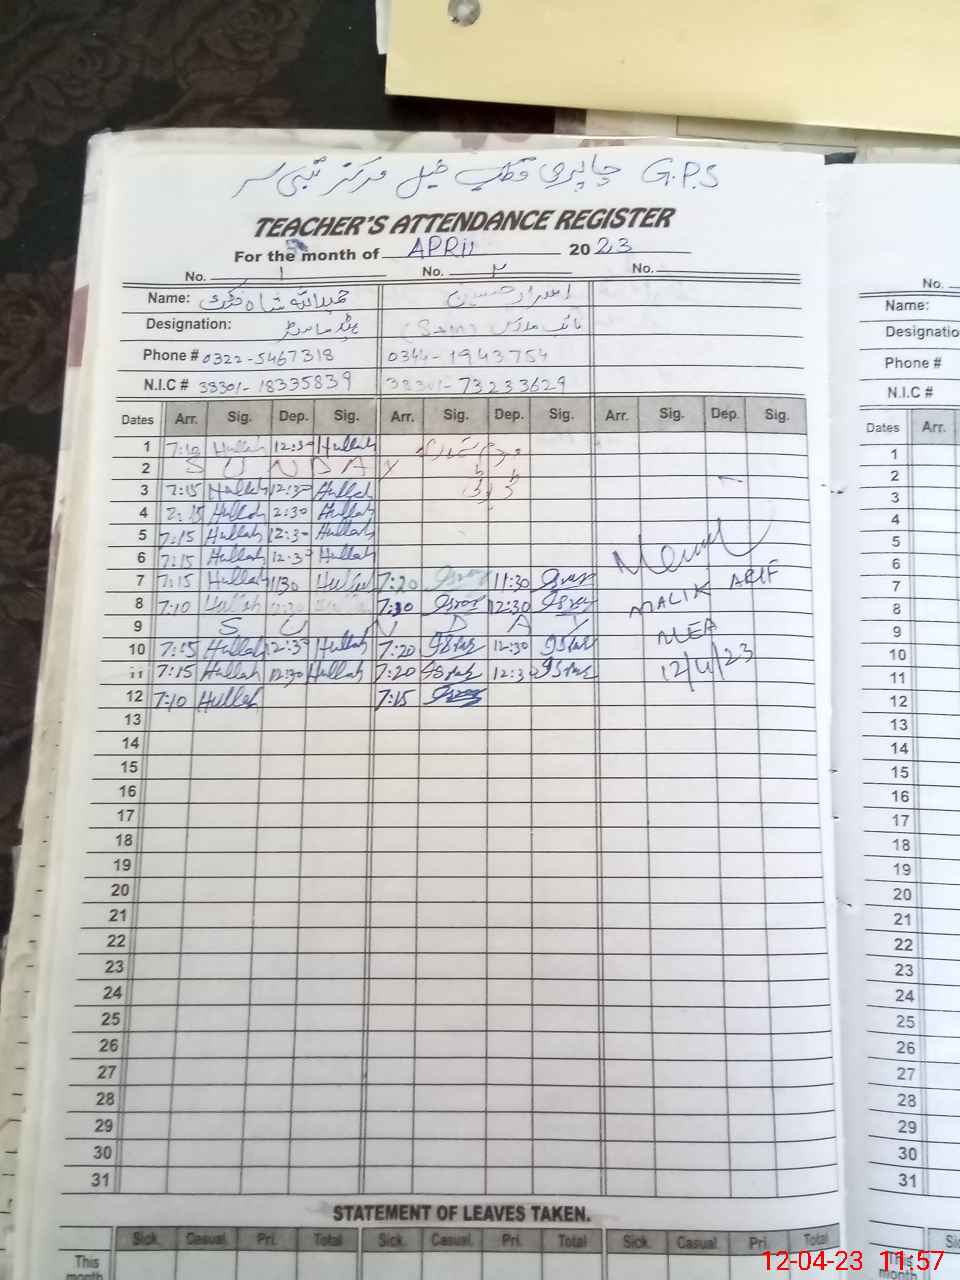 G.P.S چاپری قطب خیل مرکز ٹبی سر
TEACHER'S ATTENDANCE REGISTER
For the month of APRIL 2023
No. ۱ No. ۲ No.
Name: حمیداللہ شاہ اسرار حسین
Designation: ہیڈ ماسٹر نائب مدرس
Phone # 0322-5467318 0344-1943754
N.I.C # 38301-18335839 38301-73233629
Dates Arr. Sig. Dep. Sig. Arr. Sig. Dep. Sig. Arr. Sig. Dep. Sig.
1 7:10 Hullah 12:30 Hullah
2 SUNDAY
3 7:15 Hullah 12:30 Hullah
4 7:15 Hullah 2:30 Hullah
5 7:15 Hullah 12:30 Hullah
6 7:15 Hullah 12:30 Hullah
7 7:15 Hullah 1130 Hullah 7:20 11:30
8 7:10 Hullah 7:10 12:30
9 SUNDAY
10 7:15 Hullah 12:30 Hullah 7:20 12:30
11 7:15 Hullah 12:30 Hullah 7:20 12:30
12 7:10 Hullah 7:15
MALIK ARIF
MEA
12/4/23
13
14
15
16
17
18
19
20
21
22
23
24
25
26
27
28
29
30
31
STATEMENT OF LEAVES TAKEN.
Sick. Casual. Pri. Total Sick. Casual. Pri. Total Sick. Casual. Pri. Total
This
month
No.
Name:
Designatio
Phone #
N.I.C #
Dates Arr.
1
2
3
4
5
6
7
8
9
10
11
12
13
14
15
16
17
18
19
20
21
22
23
24
25
26
27
28
29
30
31
This
month
12-04-23 11:57